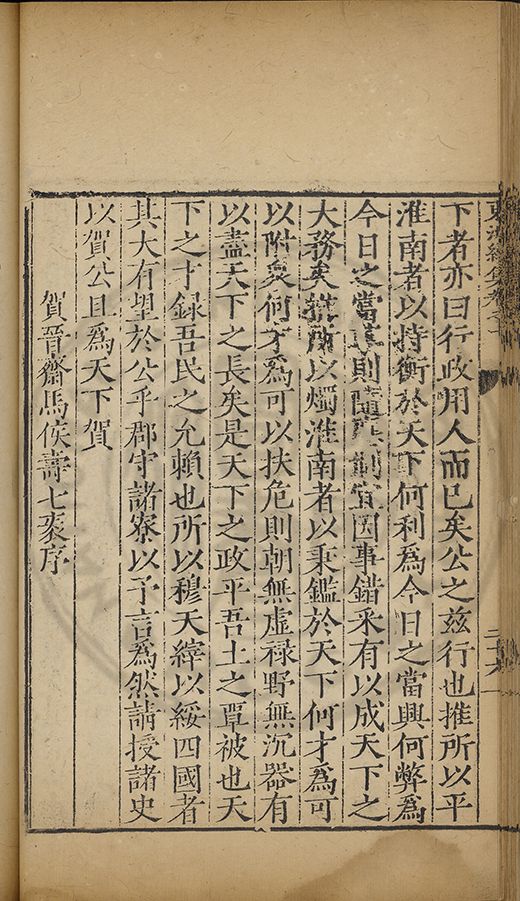 下者亦曰行政用人而已矣公之茲行也推所以平
淮南者以持衡於天下何利為今日之當興何弊為
今日之當革則隨宜因事錯采有以成天下之
大務矣推所以燭淮南者以秉鑑於天下何才為可
以附衆何才為可以扶危則朝無虛祿野無沉器有
以盡天下之長矣是天下之政平吾土之覃被也天
下之才録吾民之允賴也所以穆天縡以綏四國者
其大有望於公乎郡守諸寮以予言為然請授諸史
以賀公且為天下賀
賀晉齋馬侯壽七袠序
二十六